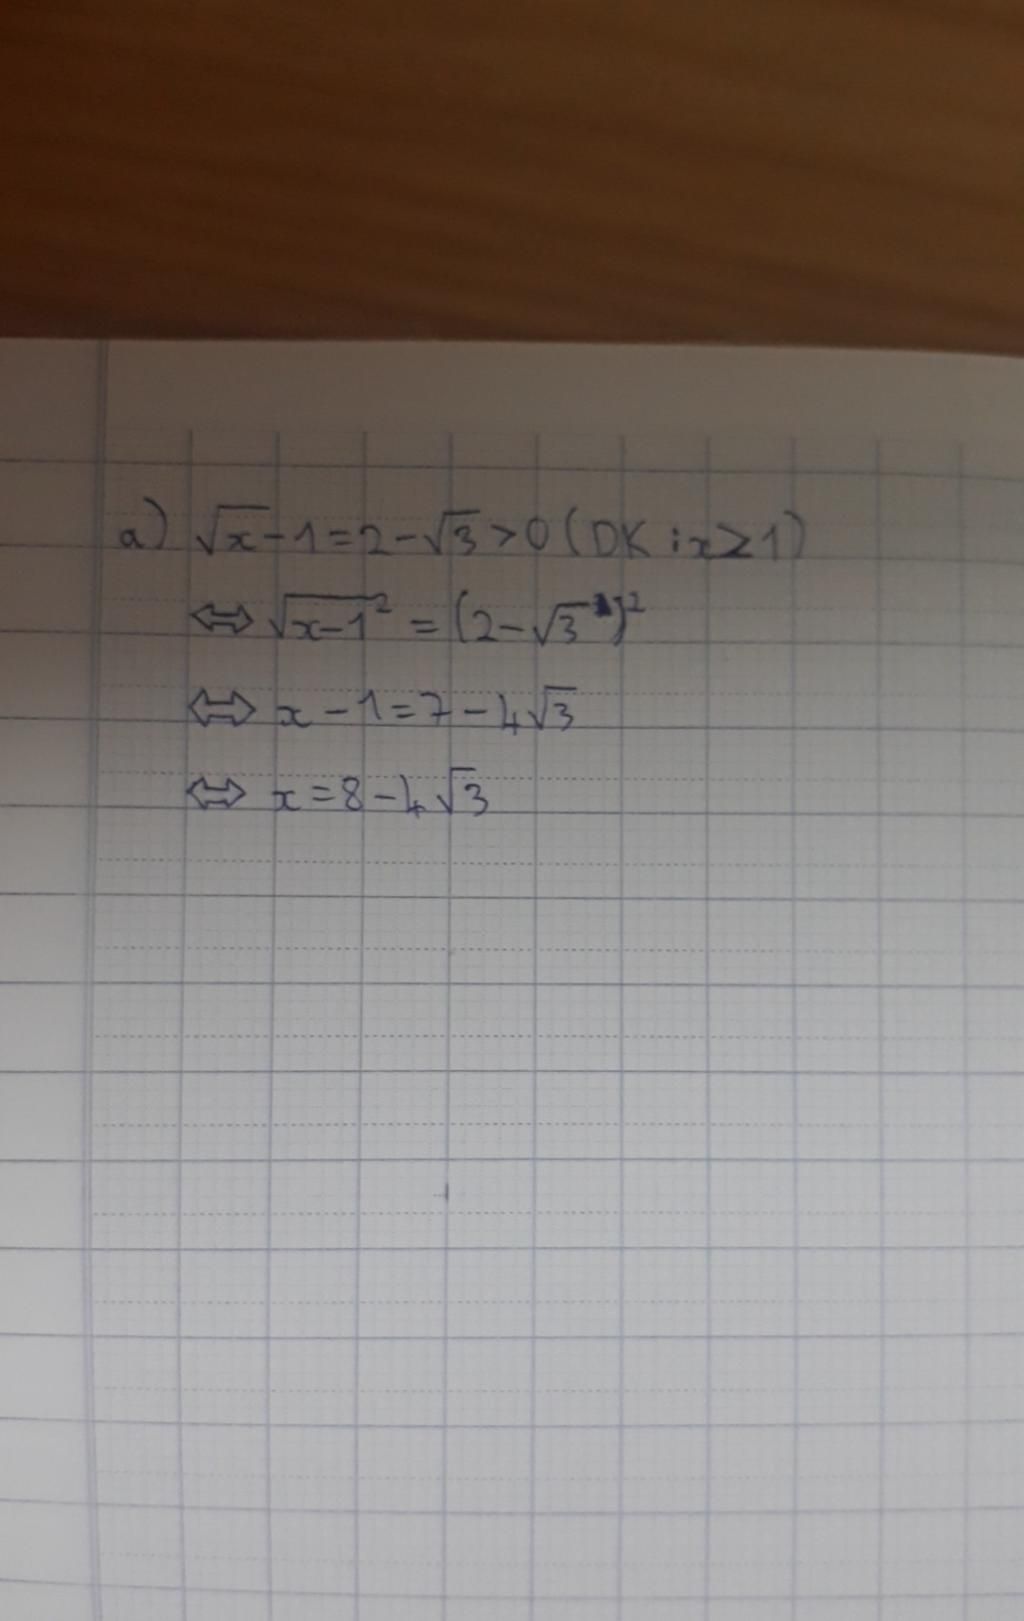 a) √x - 1 = 2 - √3 > 0 (DK : x ≥ 1)
⇔ √x-1² = (2 - √3)²
⇔ x - 1 = 7 - 4√3
⇔ x = 8 - 4√3